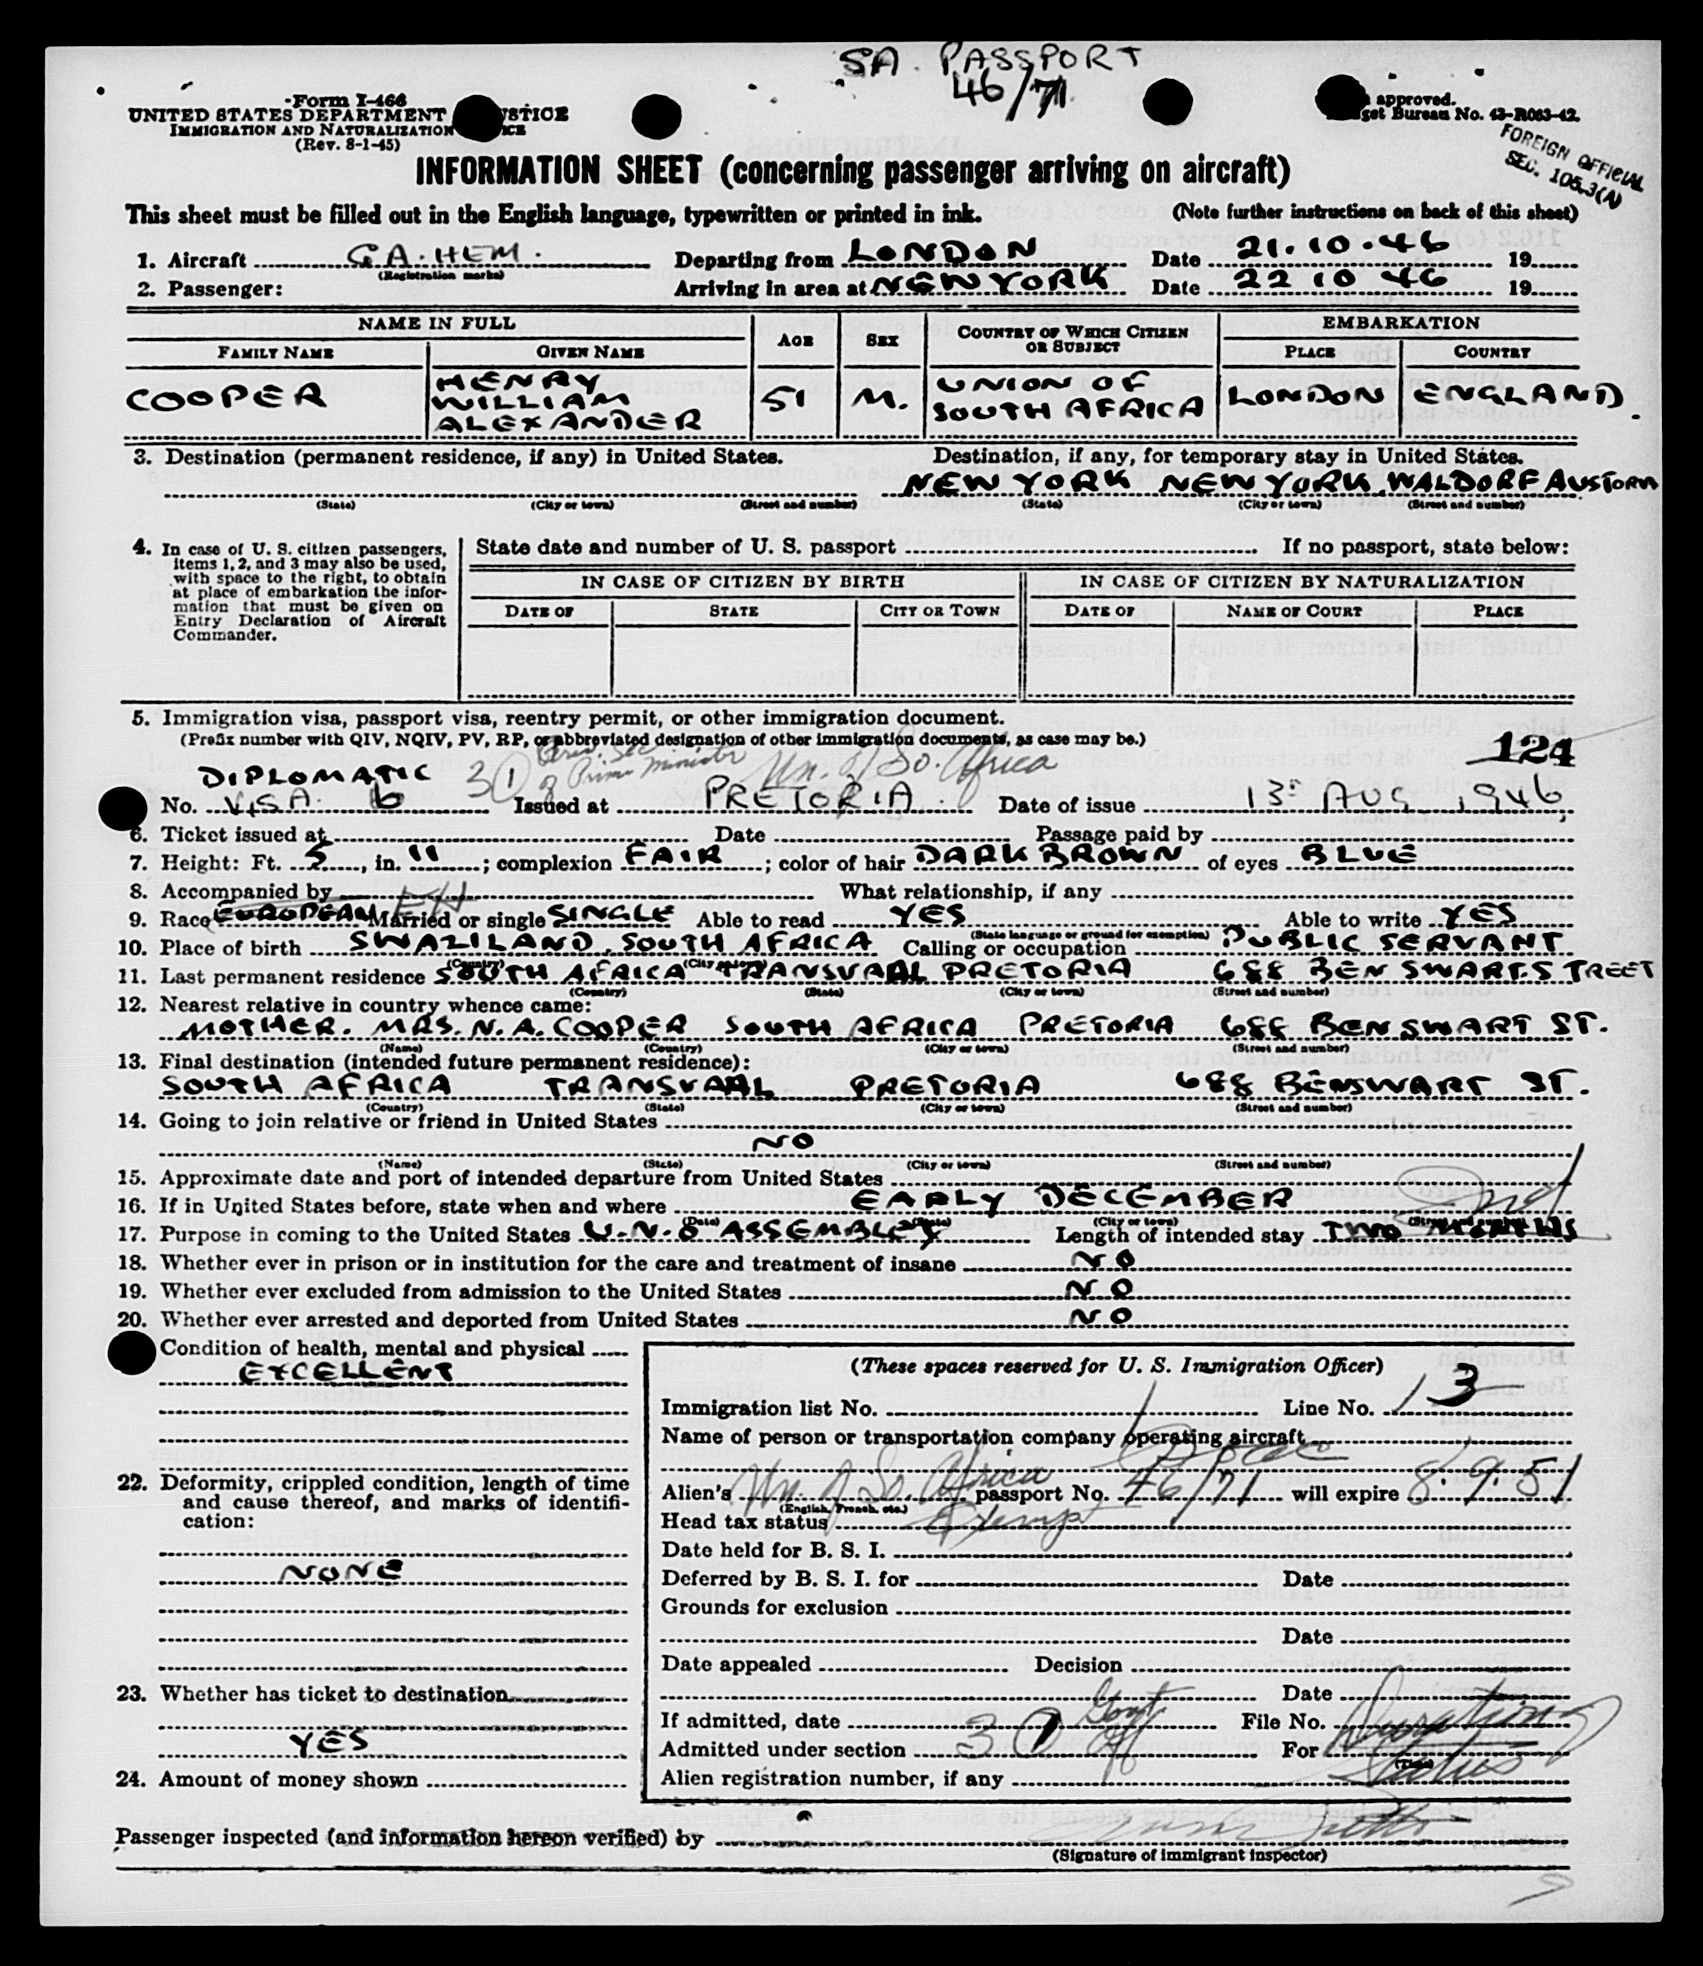 SA. PASSPORT
46/71.
Form I-466
UNITED STATES DEPARTMENT JUSTICE
IMMIGRATION AND NATURALIZATION
(Rev. 8-1-45)
approved.
get Bureau No. 43-R063-42.
FOREIGN OFFICIAL
SEC. 105.3(A)
INFORMATION SHEET (concerning passenger arriving on aircraft)
This sheet must be filled out in the English language, typewritten or printed in ink. (Note further instructions on back of this sheet)
1. Aircraft G.A.HEM. Departing from LONDON Date 21.10.46 19
(Registration marks)
2. Passenger: Arriving in area at NEW YORK Date 22 10 46 19
NAME IN FULL AGE SEX COUNTRY OF WHICH CITIZEN OR SUBJECT EMBARKATION
FAMILY NAME GIVEN NAME PLACE COUNTRY
COOPER HENRY WILLIAM ALEXANDER 51 M. UNION OF SOUTH AFRICA LONDON ENGLAND.
3. Destination (permanent residence, if any) in United States. Destination, if any, for temporary stay in United States.
NEW YORK NEW YORK WALDORF AUSTORIA
(State) (City or town) (Street and number) (State) (City or town) (Street and number)
4. In case of U. S. citizen passengers, items 1, 2, and 3 may also be used, with space to the right, to obtain at place of embarkation the information that must be given on Entry Declaration of Aircraft Commander.
State date and number of U. S. passport If no passport, state below:
IN CASE OF CITIZEN BY BIRTH IN CASE OF CITIZEN BY NATURALIZATION
DATE OF STATE CITY OR TOWN DATE OF NAME OF COURT PLACE
5. Immigration visa, passport visa, reentry permit, or other immigration document.
(Prefix number with QIV, NQIV, PV, RP, or abbreviated designation of other immigration documents, as case may be.)
124
DIPLOMATIC 3(1) Priv. Sec. of Prime Minister Un. of So. Africa
No. VISA. 6 Issued at PRETORIA. Date of issue 13 AUG 1946
6. Ticket issued at Date Passage paid by
7. Height: Ft. 5, in. 11; complexion FAIR; color of hair DARK BROWN of eyes BLUE
8. Accompanied by What relationship, if any
9. Race EUROPEAN Married or single SINGLE Able to read YES Able to write YES
(State language or ground for exemption)
10. Place of birth SWAZILAND, SOUTH AFRICA Calling or occupation PUBLIC SERVANT
(Country) (City or town)
11. Last permanent residence SOUTH AFRICA TRANSVAAL PRETORIA 688 BEN SWART.STREET
(Country) (State) (City or town) (Street and number)
12. Nearest relative in country whence came:
MOTHER. MRS. N. A. COOPER SOUTH AFRICA PRETORIA 688 BEN SWART ST.
(Name) (Country) (City or town) (Street and number)
13. Final destination (intended future permanent residence):
SOUTH AFRICA TRANSVAAL PRETORIA 688 BENSWART ST.
(Country) (State) (City or town) (Street and number)
14. Going to join relative or friend in United States
NO
(Name) (State) (City or town) (Street and number)
15. Approximate date and port of intended departure from United States
16. If in United States before, state when and where EARLY DECEMBER
(Date) (State) (City or town) (Street and number)
17. Purpose in coming to the United States U.N.O ASSEMBLEY Length of intended stay TWO MONTHS
18. Whether ever in prison or in institution for the care and treatment of insane NO
19. Whether ever excluded from admission to the United States NO
20. Whether ever arrested and deported from United States NO
Condition of health, mental and physical
EXCELLENT
22. Deformity, crippled condition, length of time and cause thereof, and marks of identification:
NONE
23. Whether has ticket to destination
YES
24. Amount of money shown
(These spaces reserved for U. S. Immigration Officer)
Immigration list No. 1 Line No. 13
Name of person or transportation company operating aircraft
Alien's Un. of So. Africa passport No. 46/71 will expire 8.9.51
(English, French, etc.)
Head tax status Exempt
Date held for B. S. I.
Deferred by B. S. I. for Date
Grounds for exclusion
Date
Date appealed Decision
Date
If admitted, date File No.
Admitted under section 3(1) Govt Off For Duration of Status
(Time)
Alien registration number, if any
Passenger inspected (and information hereon verified) by
(Signature of immigrant inspector)